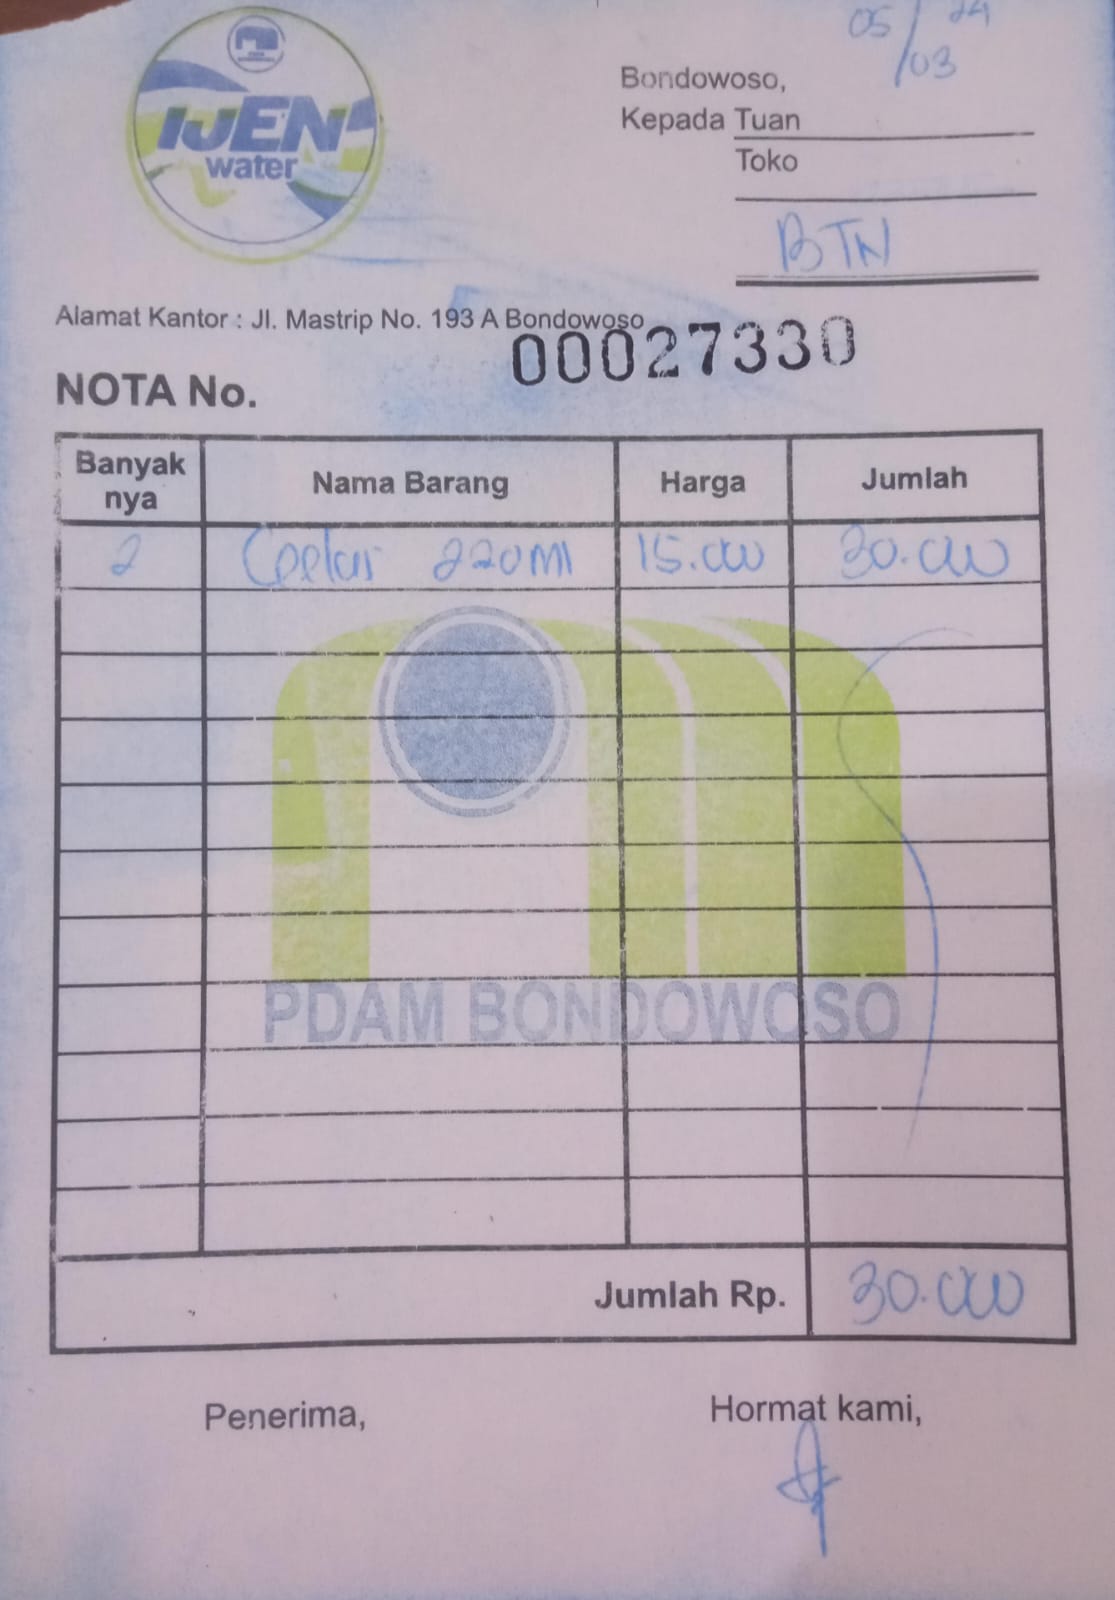 05/03 24
IJEN
water
Bondowoso,
Kepada Tuan
Toko
BTN
Alamat Kantor : Jl. Mastrip No. 193 A Bondowoso
NOTA No. 00027330
Banyak nya Nama Barang Harga Jumlah
2 220 Ml 15.000 30.000
PDAM BONDOWOSO
Jumlah Rp. 30.000
Penerima, Hormat kami,